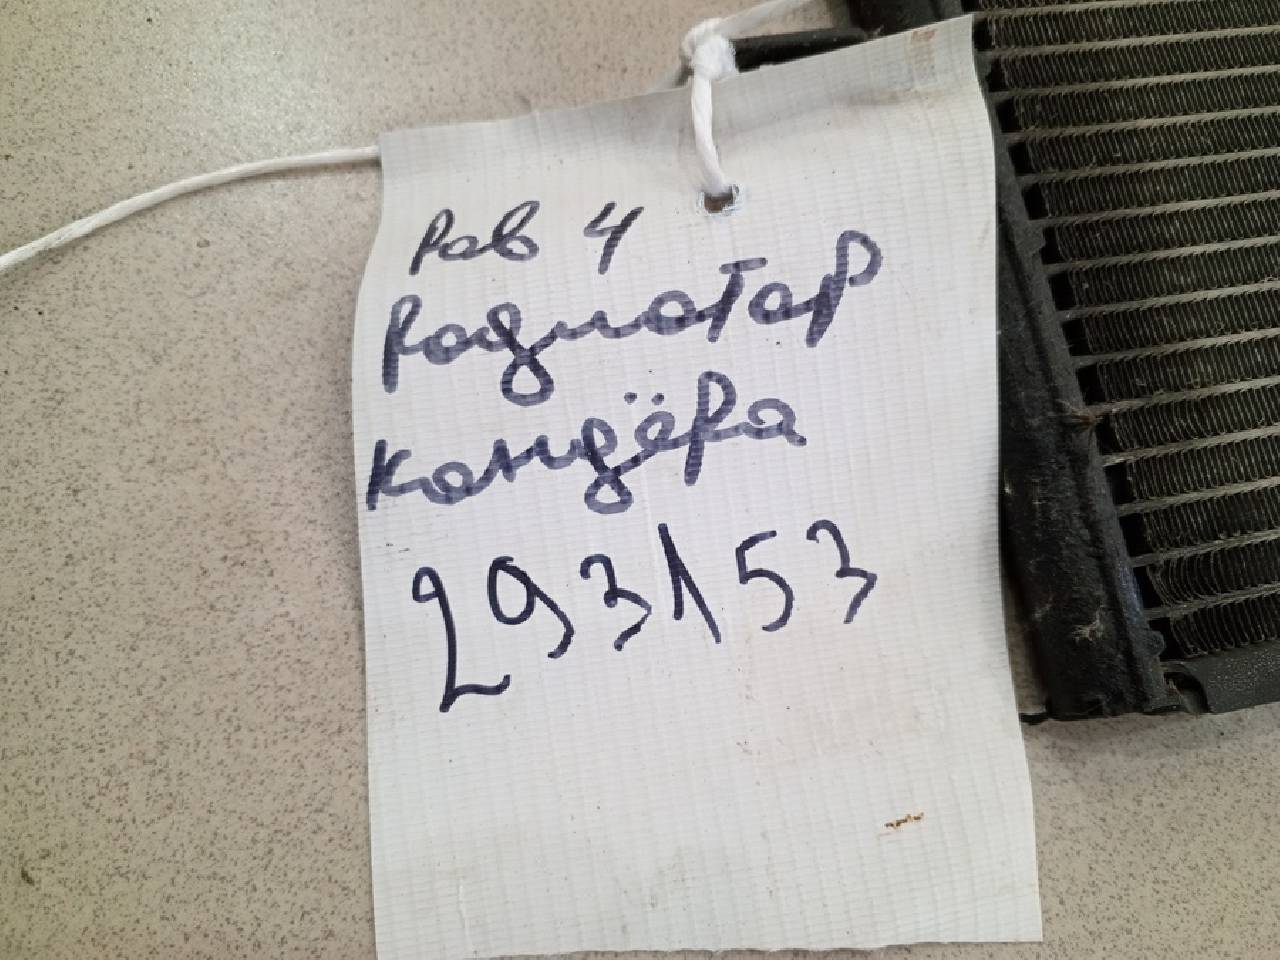 Рав 4
Радиатар
Кандёра
293153